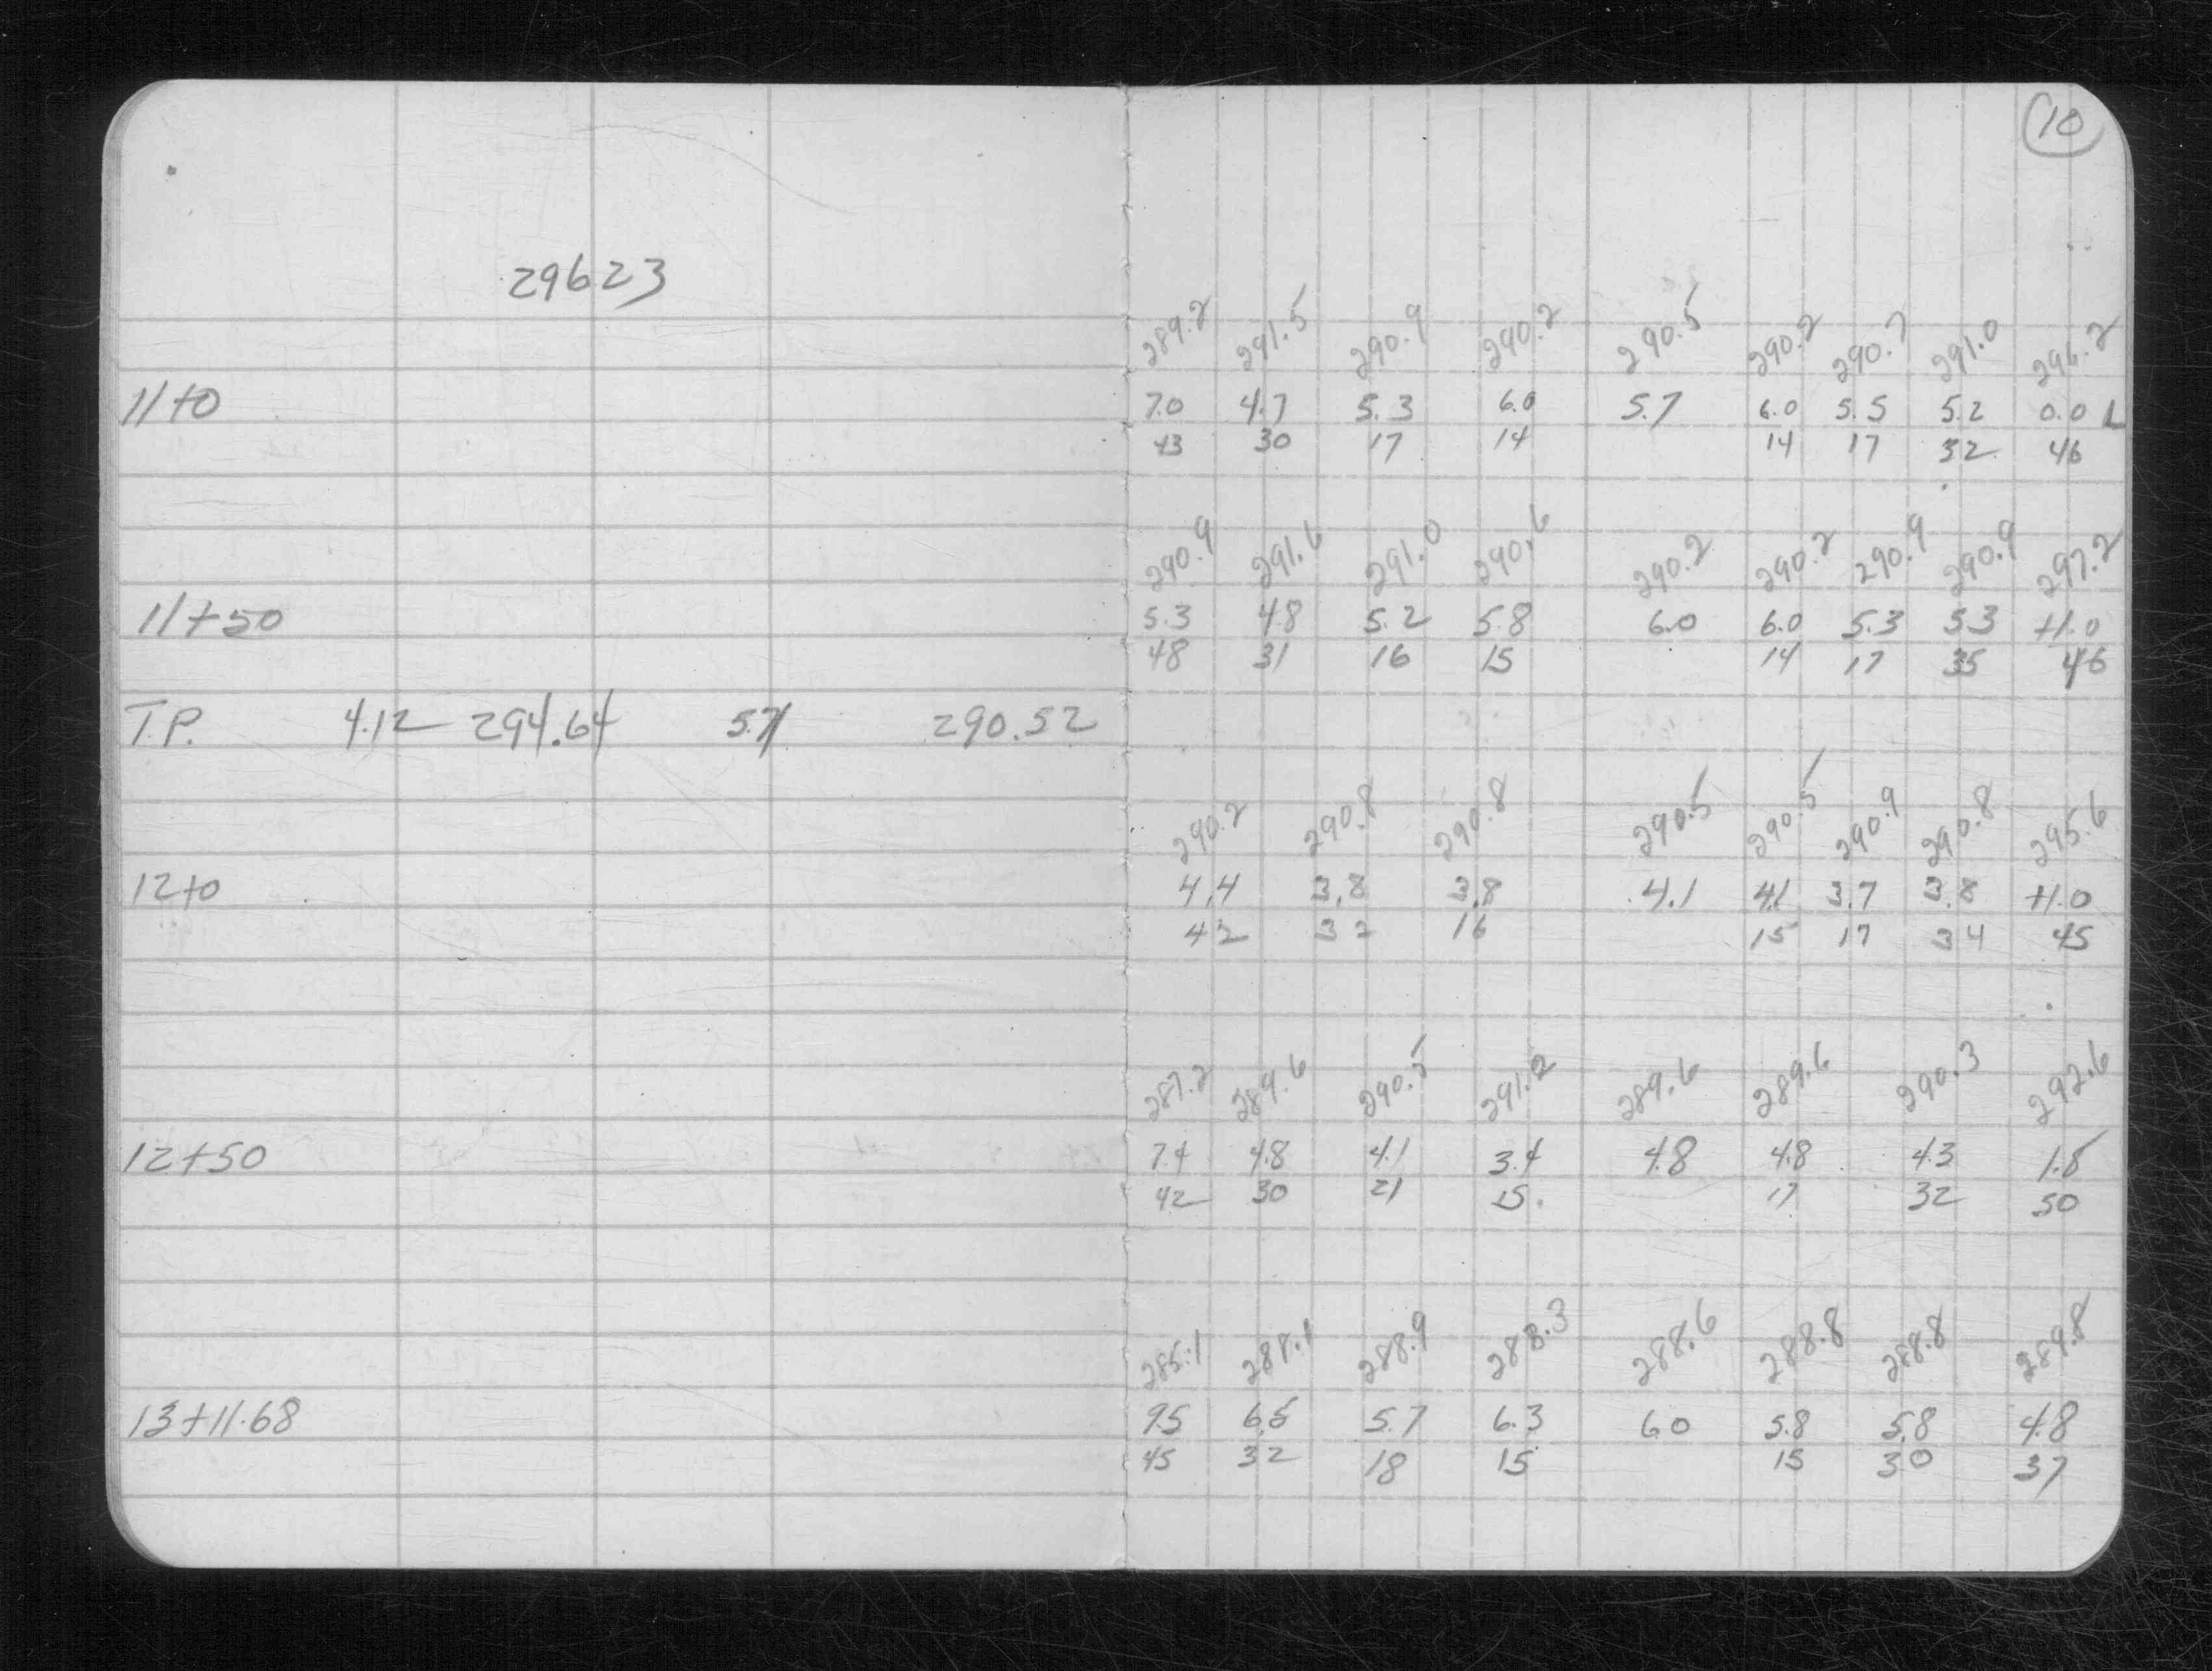 10
29623
289.2 291.5 290.9 290.2 290.5 290.2 290.7 291.0 296.2
11+0 7.0 4.7 5.3 6.0 5.7 6.0 5.5 5.2 0.0 L
43 30 17 14 14 17 32 46
290.9 291.6 291.0 290.6 290.2 290.2 290.9 290.9 297.2
11+50 5.3 4.8 5.2 5.8 6.0 6.0 5.3 5.3 +1.0
48 31 16 15 14 17 35 46
T.P. 4.12 294.64 5.71 290.52
290.2 290.8 290.8 290.5 290.5 290.9 290.8 295.6
12+0 4.4 3.8 3.8 4.1 4.1 3.7 3.8 +1.0
42 32 16 15 17 34 45
287.2 289.6 290.5 291.2 289.6 289.6 290.3 292.6
12+50 7.4 4.8 4.1 3.4 4.8 4.8 4.3 1.8
42 30 21 15. 17 32 50
285.1 288.1 288.9 288.3 288.6 288.8 288.8 289.8
13+11.68 9.5 6.5 5.7 6.3 6.0 5.8 5.8 4.8
45 32 18 15 15 30 37